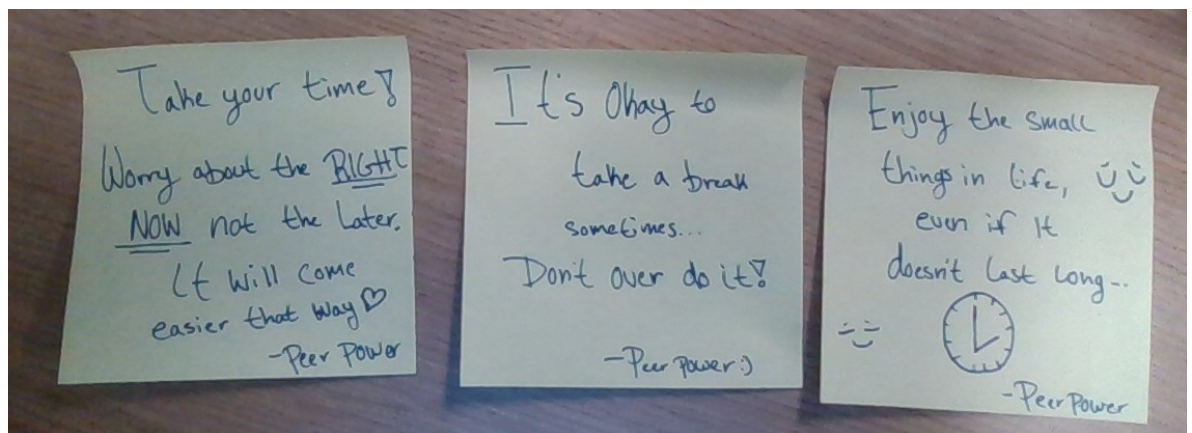 Take your time!
Worry about the RIGHT
NOW not the Later.
It will come
easier that way ♡
-Peer Power
It's Okay to
take a break
sometimes...
Don't over do it!
-Peer Power :)
Enjoy the small
things in life,
even if It
doesn't last long...
-Peer Power